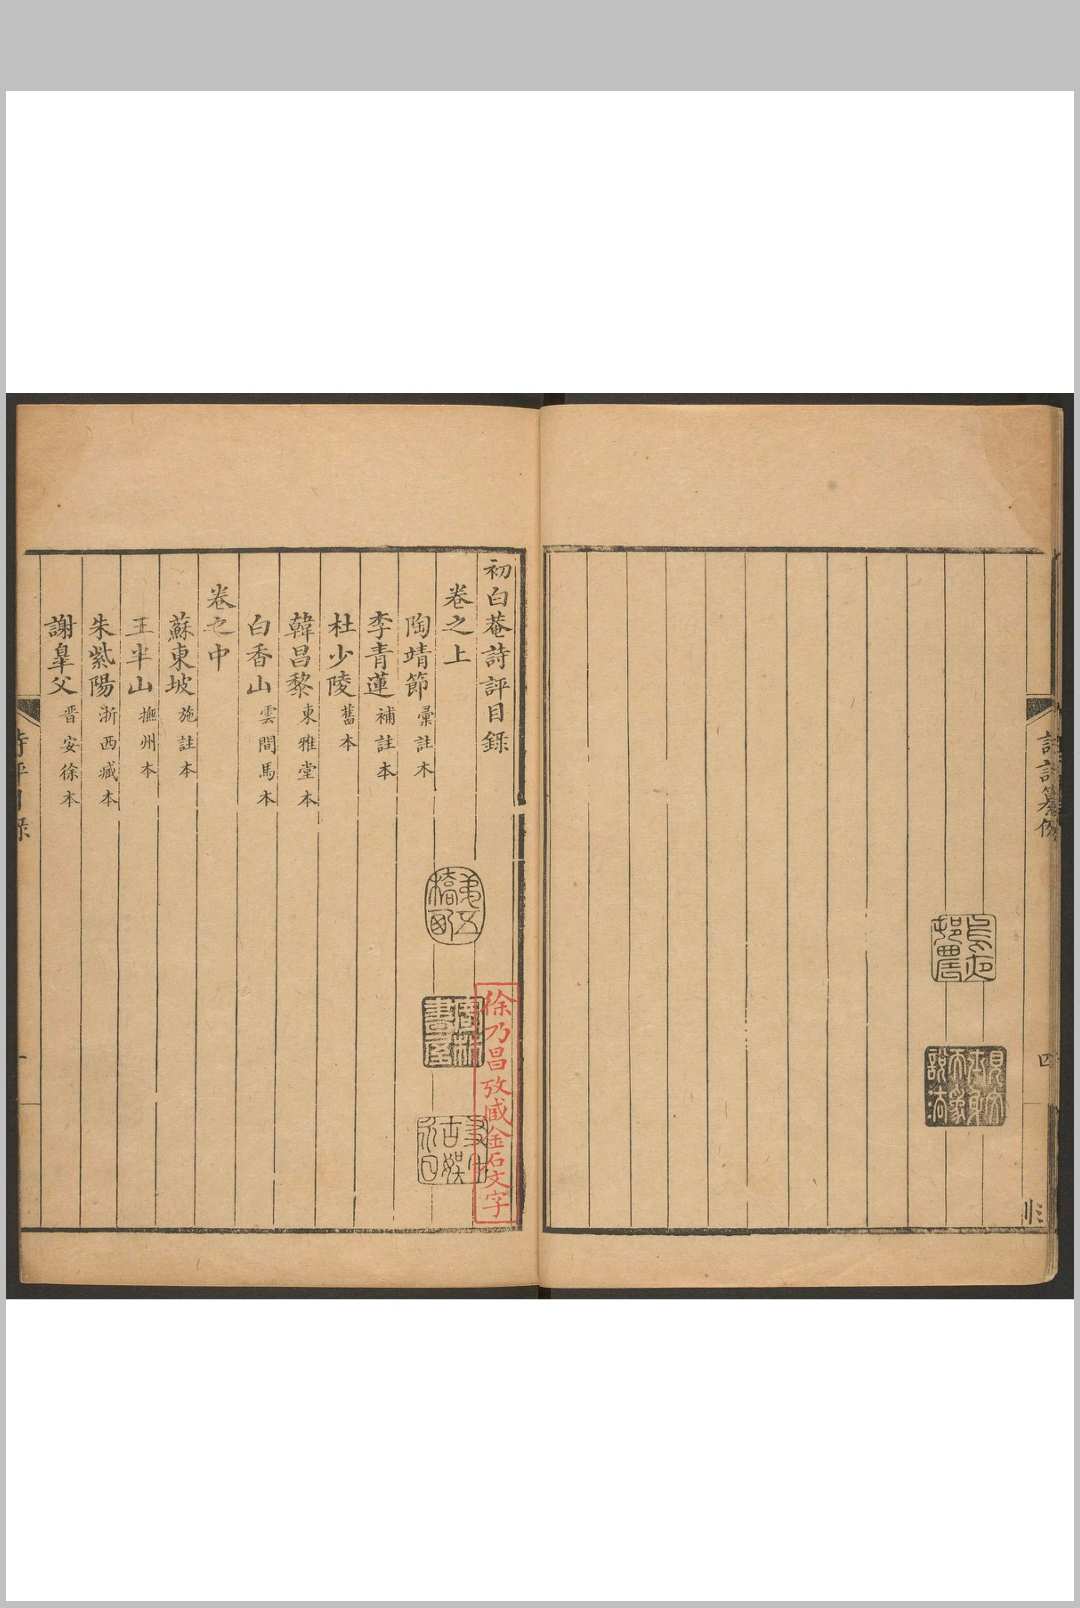 四
初白菴詩評目錄
卷之上
陶靖節 彙註本
李青蓮 補註本
杜少陵 舊本
韓昌黎 東雅堂本
白香山 雲間馬本
卷之中
蘇東坡 施註本
王半山 撫州本
朱紫陽 浙西臧本
謝皐父 晋安徐本
徐乃昌攷臧金石文字